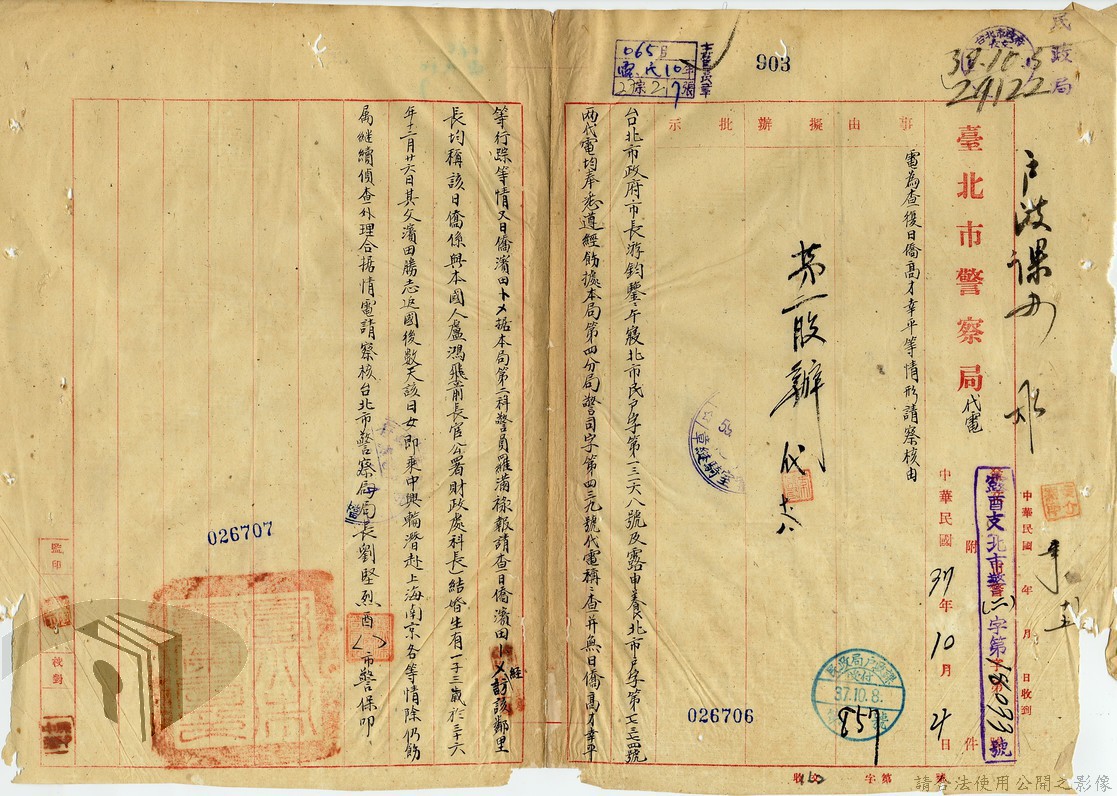 民政局
38.10.5
29122
903
主政課
臺北市警察局代電
事由擬辦批示
電為查復日僑高才幸平等情形請察核由
第一股辦
中華民國 年 月 日收到
酉支北市警(二)字第18099號
附件
中華民國37年10月4日
民政局戶政課
37.10.8.
857
收文 字第 號
台北市政府市長游鈞鑒:午寢北市民戶字第一三六八號及露申養北市戶字第七三七四號
兩代電均奉悉遵經飭據本局第四分局警司字第四三九號代電稱:查并無日僑高才幸平
026706
等行蹤等情又日僑濱田トメ据本局第二科警員羅滿祿報請查日僑濱田トメ經訪該鄰里
長均稱該日僑係與本國人盧鴻飛(前長官公署財政處科長)結婚生有一子三歲於三十六
年十二月廿六日其父濱田勝志返國後數天該日女即乘中興輪潛赴上海南京各等情除仍飭
属継續偵查外理合据情電請察核台北市警察局局長劉堅烈酉( )市警保叩
026707
監印
校對
請合法使用公開之影像